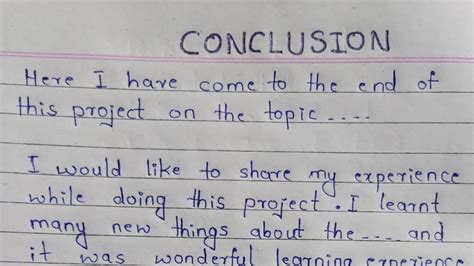 CONCLUSION
Here I have come to the end of
this project on the topic ....
I would like to share my experience
while doing this project. I learnt
many new things about the .... and
it was wonderful learning experience